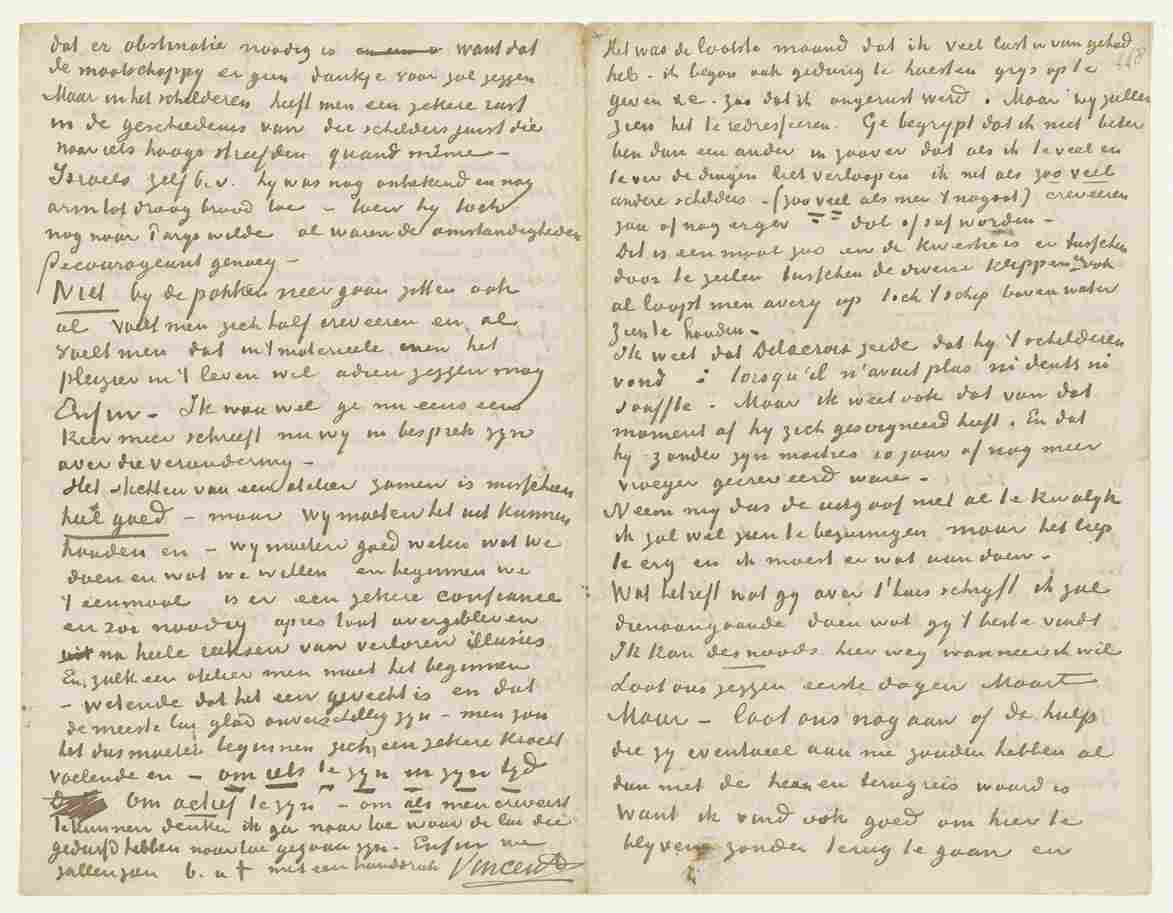 dat er obstinatie noodig is want dat
de maatschappy er geen dankje voor zal zeggen
Maar in het schilderen heeft men een zekere rust
in de geschiedenis van die schilders juist die
naar iets hoogs streefden quand même –
Israels zelf b.v. hy was nog onbekend en nog
arm tot droog brood toe – toen hy toch
nog naar Parys wilde al waren de omstandigheden
Decourageant genoeg –
Niet by de pakken neer gaan zitten ook
al voelt men zich half creveeren en al
voelt men dat in 't materieele men het
pleizier in 't leven wel adieu zeggen mag
Enfin – Ik wou wel ge nu eens een
keer meer schreeft nu wy in besprek zyn
over die verandering –
Het stichten van een atelier zamen is misschien
heel goed – maar wy moeten het uit kunnen
houden en – wy moeten goed weten wat we
doen en wat we willen en beginnen we
't eenmaal is er een zekere confiance
en zoi noodig apres tout overgebleven
na heele reeksen van verloren illusies
En, zulk een atelier men moet het beginnen
– wetende dat het een gevecht is en dat
de meeste lui glad onverschillig zyn – men zou
het dus moeten beginnen zich een zekere kracht
voelende en – om iets te zyn in zyn tyd
om actief te zyn – om als men creveert
te kunnen denken ik ga naar toe waar de lui die
gedurfd hebben naar toe gegaan zyn. Enfin we
zullen zien b. à t met een handdruk Vincent
Het was de laatste maand dat ik veel last er van gehad
heb – ik begon ook gedurig te hoesten grys op te
geven &c. zoo dat ik ongerust werd. Maar wy zullen
zien het te redresseeren. Ge begrypt dat ik niet beter
ben dan een ander in zoover dat als ik te veel en
te ver de dingen liet verloopen ik net als zoo veel
andere schilders – (zoo veel als men 't nagaat) creveeren
zou of nog erger – dol of saf worden –
Dit is eenmaal zoo en de kwestie is er tusschen
door te zeilen tusschen de diverse klippen en ook
al loopt men avery op toch 't schip boven water
zien te houden –
Ik weet dat Delacroix zeide dat hy 't schilderen
vond : lorsqu'il n'avait plus ni dents ni
souffle – Maar ik weet ook dat van dat
moment af hy zich gesoigneerd heeft. En dat
hy zonder zyn maitres 10 jaar of nog meer
vroeger gecreveerd ware –
Neem my dus de uitgaaf niet al te kwalyk
ik zal wel zien te bezuinigen maar het liep
te erg en ik moest er wat aan doen –
Wat betreft wat gy over t'huis schryft ik zal
dienaangaande doen wat gy 't beste vindt
Ik kan desnoods hier weg wanneer ik wil
Laat ons zeggen eerste dagen Maart
Maar – laat ons nog aan of de hulp
die zy eventueel aan me zouden hebben al
dan niet de heen en terugreis waard is
want ik vind ook goed om hier te
blyven zonder terug te gaan en